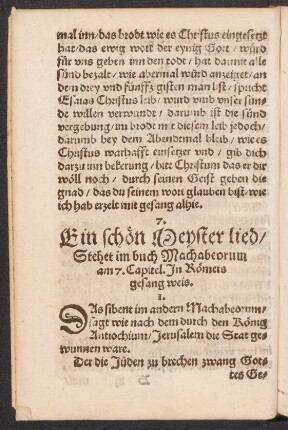 mal inn/ das brodt wie es Christus eingesetzt
hat/ das ewig wort der eynig Gott/ würd
für uns geben inn den todt/ hat damit alle
sünd bezalt/ wie abermal würd anzeiget/ an
dem drey und fünfftzigisten man list/ spricht
Esaias Christus leib/ wurd umb unser sün-
de willen verwundt/ darumb ist die sünd
vergebung/ im brodt mit diesem leib jedoch/
darumb bey dem Abendtmal bleib/ wie es
Christus warhafft einsetzet und/ gib dich
darzu inn bekerung/ bitt Christum das er dir
wöll noch/ durch seinen Geist geben die
gnad/ das du seinem wort glauben bist/ wie
ich hab erzelt mit gesang alhie.
7.
Ein schön Meyster lied/
Stehet im buch Machabeorum
am 7. Capitel. In Römers
gesang weis.
1.
DAs sibent im andern Machabeorum/
sagt wie nach dem durch den König
Antiochium/ Jerusalem die Stat ge-
wunnen ware.
Der die Jüden zu brechen zwang Got-
tes Ge-